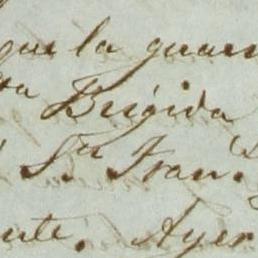 que la guar
Brigida
Sn Fran.
nte. Ayer